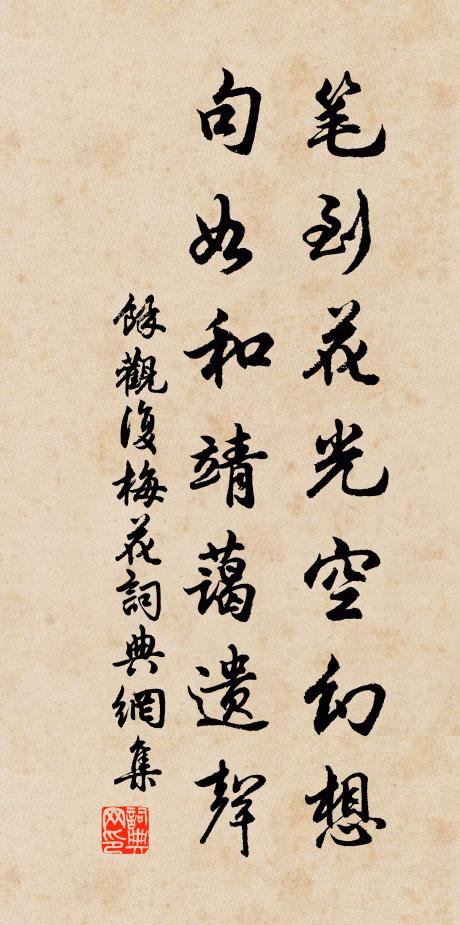 笔到花光空幻想
句如和靖蔼遗聲
餘觀復梅花詞典網集
詞典网印